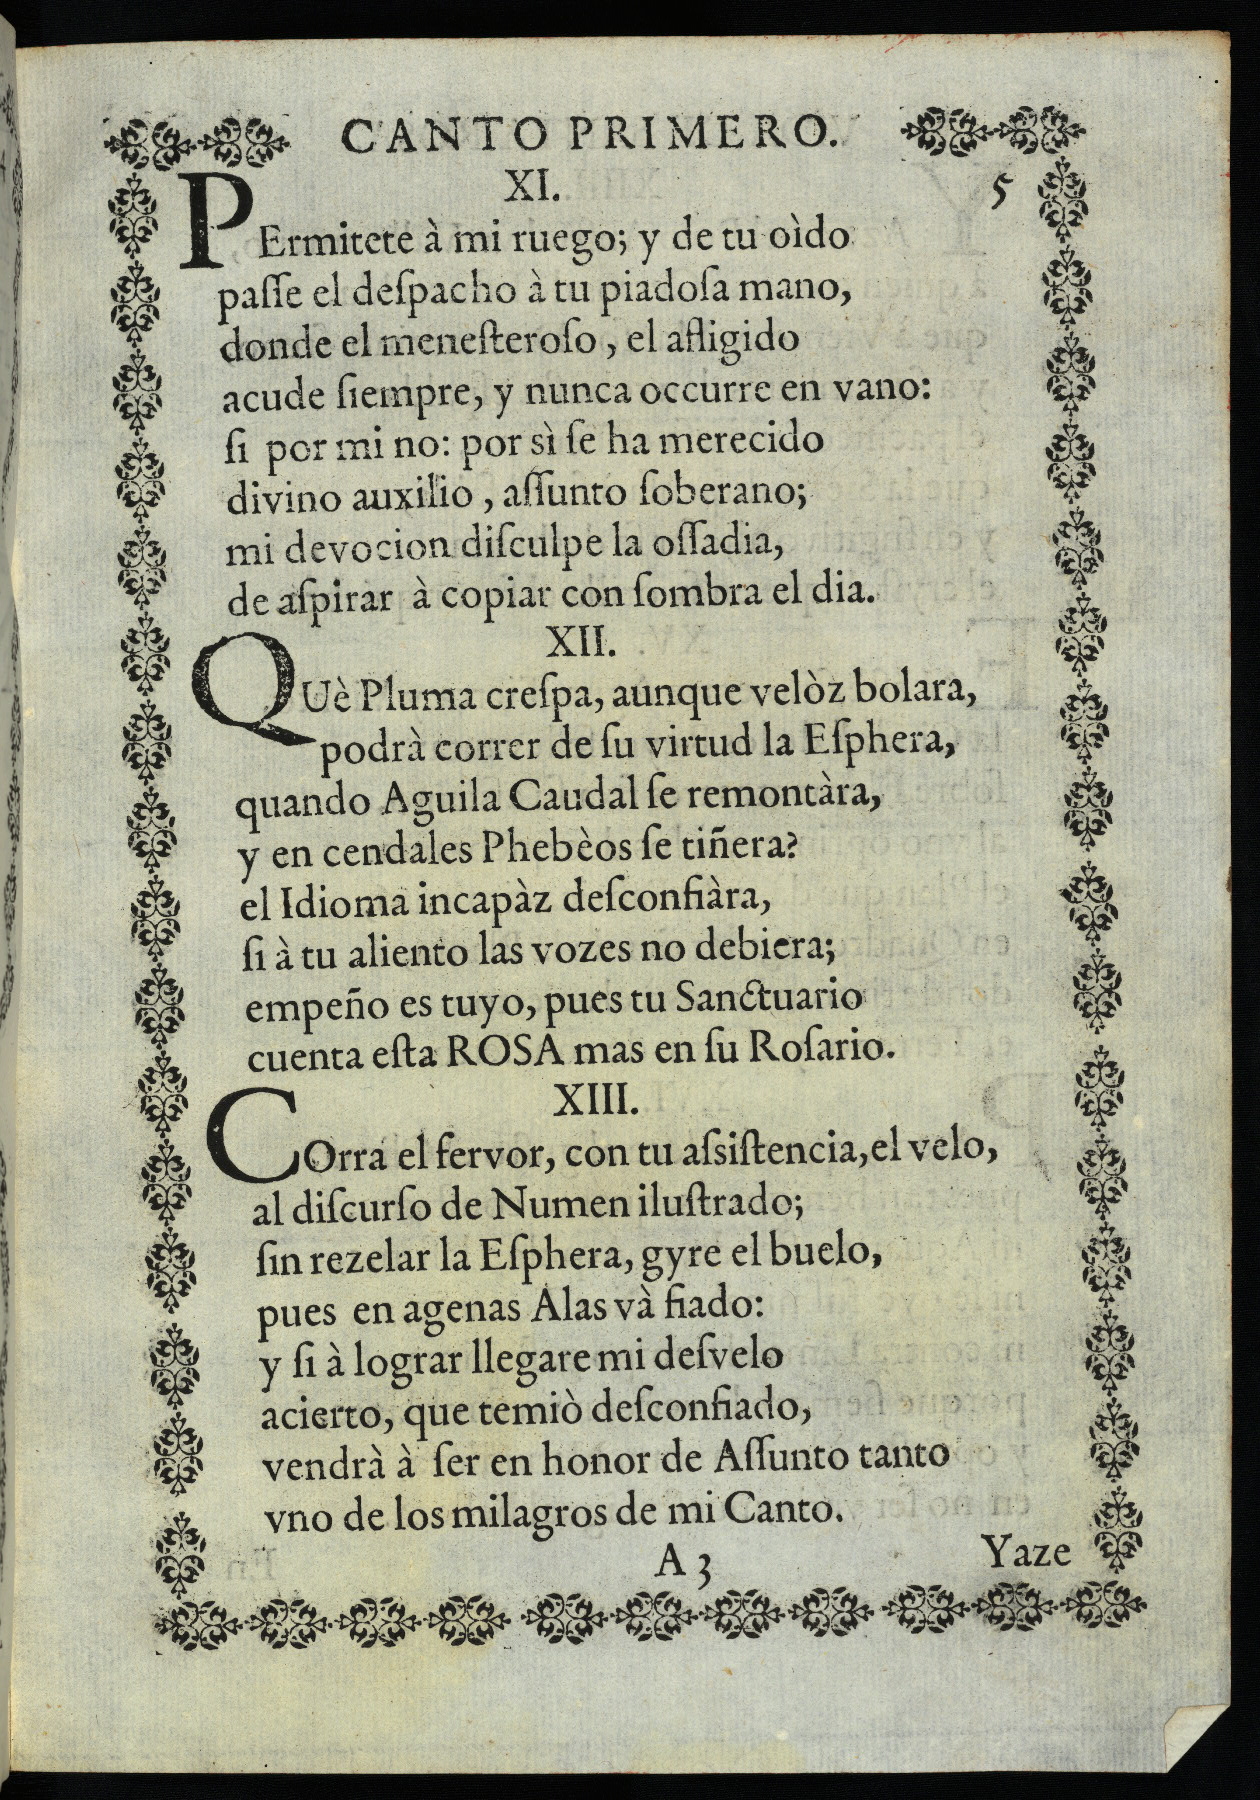 CANTO PRIMERO.
XI. 5
PErmitete à mi ruego; y de tu oìdo
paſſe el deſpacho à tu piadoſa mano,
donde el meneſteroſo, el afligido
acude ſiempre, y nunca occurre en vano:
ſi por mi no: por sì ſe ha merecido
divino auxilio, aſſunto ſoberano;
mi devocion diſculpe la oſſadia,
de aſpirar à copiar con ſombra el dia.
XII.
QUè Pluma creſpa, aunque velòz bolara,
podrà correr de ſu virtud la Eſphera,
quando Aguila Caudal ſe remontàra,
y en cendales Phebèos ſe tiñera?
el Idioma incapàz deſconfiàra,
ſi à tu aliento las vozes no debiera;
empeño es tuyo, pues tu Sanctuario
cuenta eſta ROSA mas en ſu Roſario.
XIII.
COrra el fervor, con tu aſsiſtencia, el velo,
al diſcurſo de Numen iluſtrado;
ſin rezelar la Eſphera, gyre el buelo,
pues en agenas Alas và fiado:
y ſi à lograr llegare mi deſvelo
acierto, que temiò deſconfiado,
vendrà à ſer en honor de Aſſunto tanto
vno de los milagros de mi Canto.
A 3 Yaze